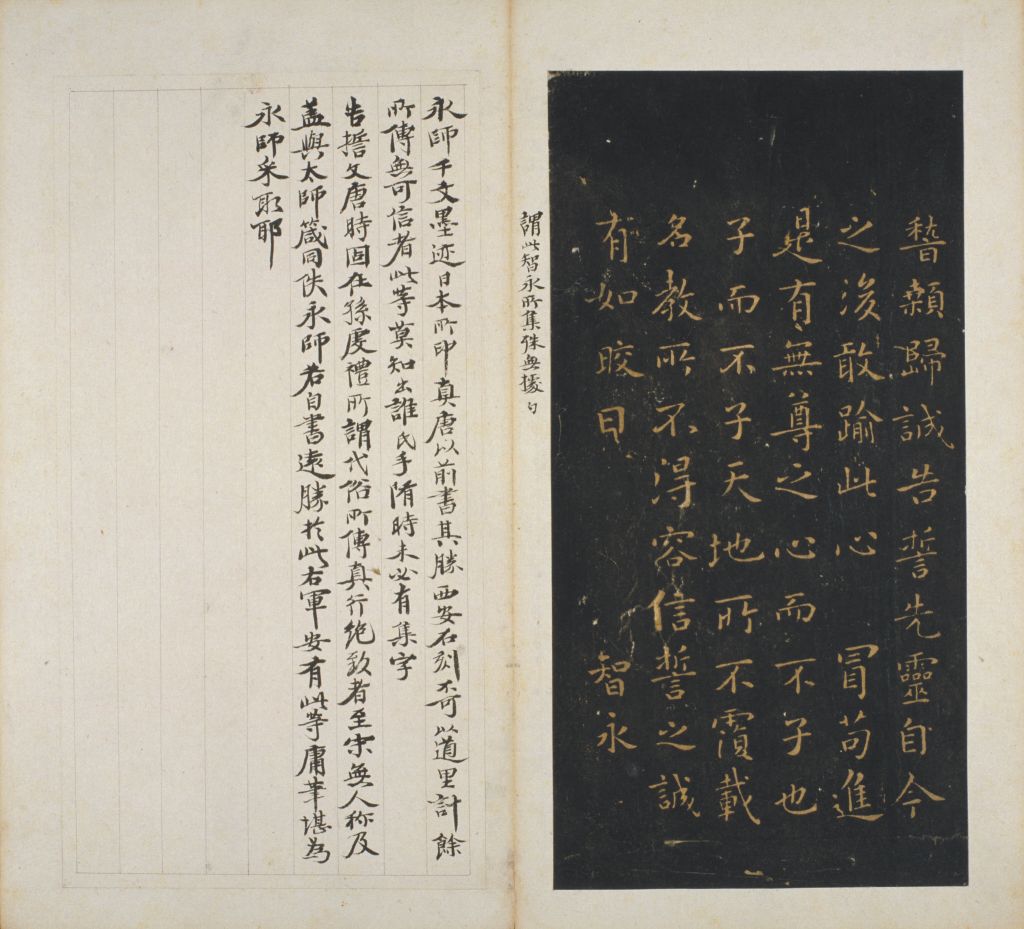 稽顙歸誠告誓先靈自今
之後敢踰此心　冒苟進
是有無尊之心而不子也
子而不子天地所不覆載
名教所不得容信誓之誠
有如皎日　智永
謂此智永所集殊無據
永師千文墨迹日本所印真唐以前書其勝西安石刻不可以道里計餘
所傳無可信者此等莫知出誰氏手隋時未必有集字
告誓文唐時固在孫虔禮所謂代俗所傳真行絶致者至宋無人稱及
蓋與太師箴同佚永師若自書遠勝於此右軍安有此等庸筆堪為
永師采取耶